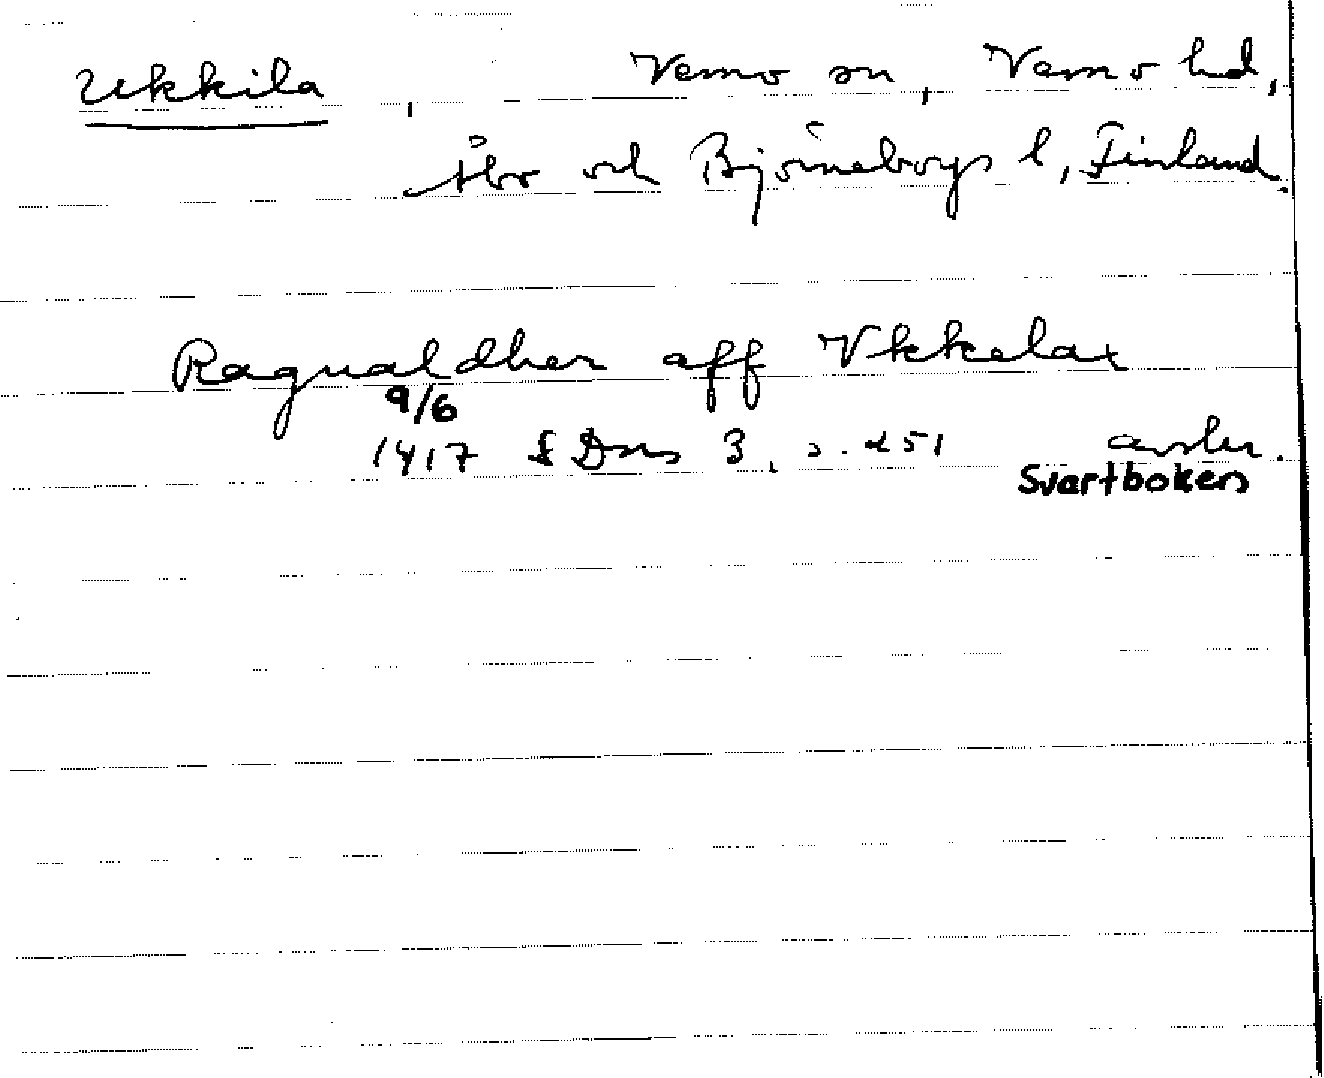 Ukkila, Vemo sn, Vemo hd,
Åbo och Björneborgs l, Finland.
Ragualdher aff Vkkelax
9/6
1417 SDns 3, s. 251 avskr.
Svartboken